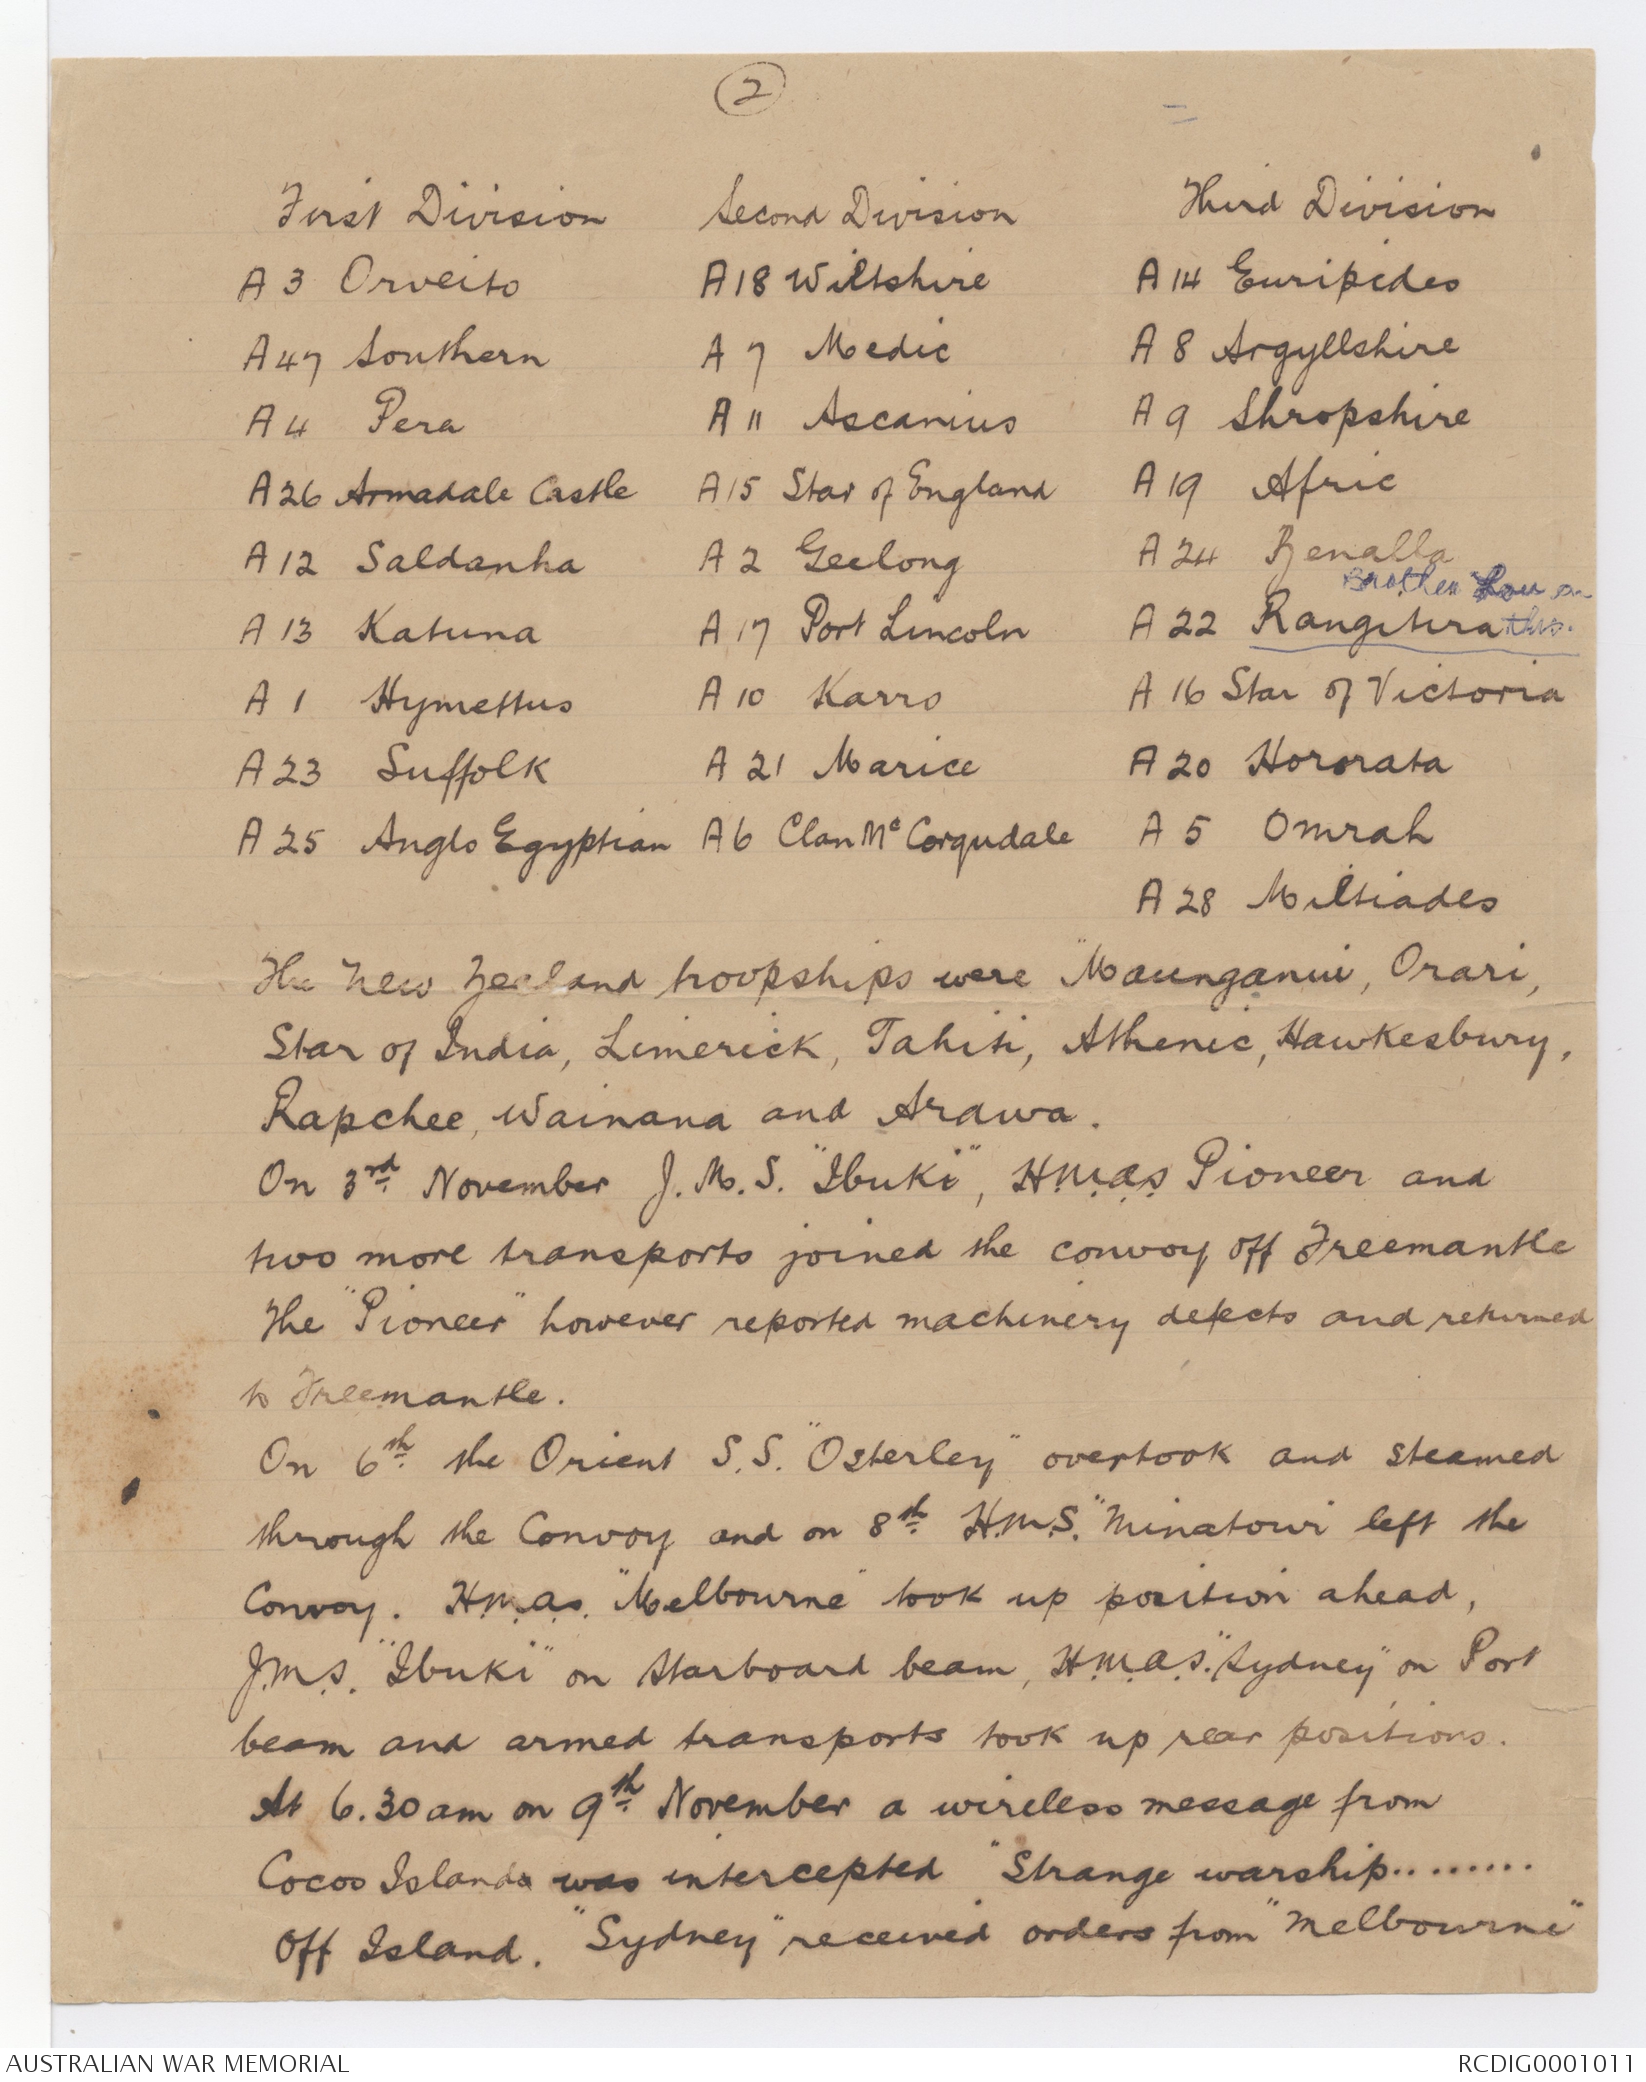 2
First Division Second Division Third Division
A 3 Orveito A 18 Wiltshire A 14 Euripides
A 47 Southern A 7 Medic A 8 Argyllshire
A 4 Pera A 11 Ascanius A 9 Shropshire
A 26 Armadale Castle A 15 Star of England A 19 Afric
A 12 Saldanha A 2 Geelong A 24 Benalla
Brother on
A 13 Katuna A 17 Port Lincoln A 22 Rangitira this.
A 1 Hymettus A 10 Karro A 16 Star of Victoria
A 23 Suffolk A 21 Marice A 20 Hororata
A 25 Anglo Egyptian A 6 Clan Mc Corqudale A 5 Omrah
A 28 Miltiades
The New Zealand troopships were "Maunganui, Orari,
Star of India, Limerick, Tahiti, Athenic, Hawkesbury,
Rapchee, Wainana and Arawa.
On 3rd November J.M.S. "Ibuki", H.M.A.S Pioneer and
two more transports joined the convoy off Freemantle
The "Pioneer" however reported machinery defects and returned
to Freemantle.
On 6th the Orient S.S. "Osterley" overtook and steamed
through the Convoy and on 8th H.M.S. "Minatour left the
Convoy. H.M.A.S. "Melbourne" took up position ahead,
J.M.S. "Ibuki" on Starboard beam, H.M.A.S. "Sydney" on Port
beam and armed transports took up rear positions.
At 6.30 am on 9th November a wireless message from
Cocos Islands was intercepted "Strange warship.........
Off Island. "Sydney" received orders from "Melbourne"
AUSTRALIAN WAR MEMORIAL RCDIG0001011